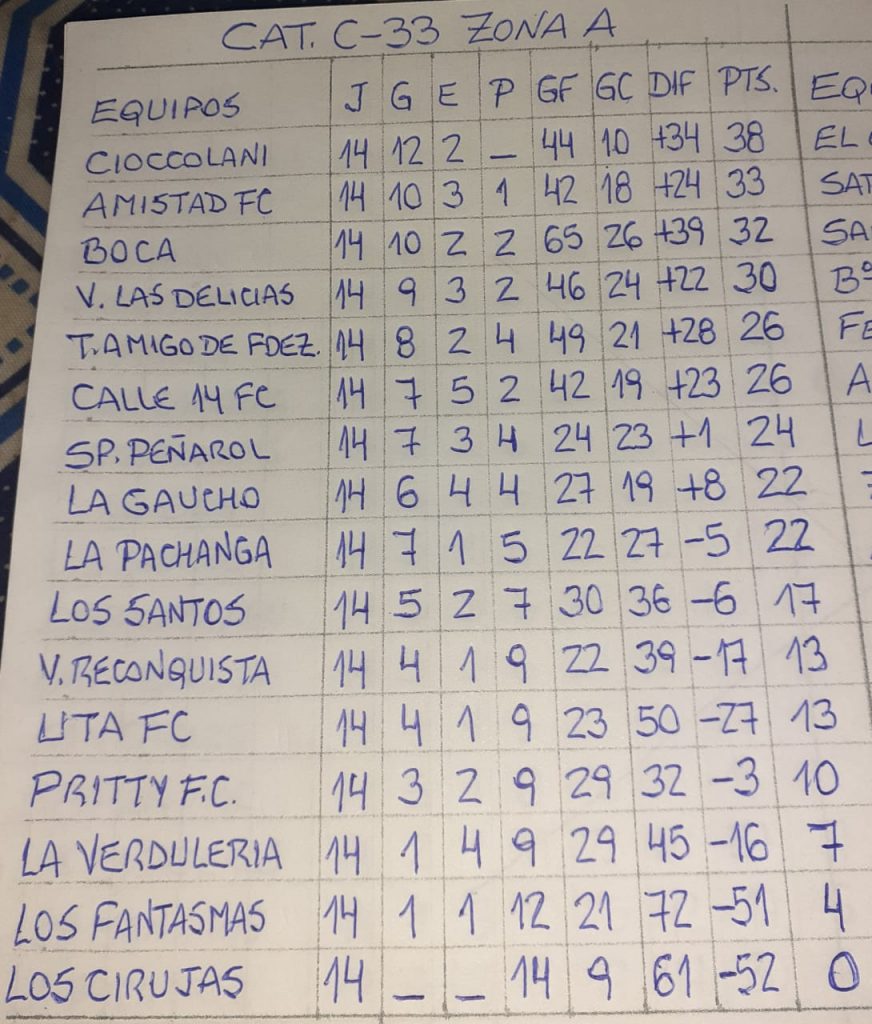 CAT. C-33 ZONA A
EQUIPOS J G E P GF GC DIF PTS. EQU
CIOCCOLANI 14 12 2 — 44 10 +34 38 EL
AMISTAD FC 14 10 3 1 42 18 +24 33 SAT
BOCA 14 10 2 2 65 26 +39 32 SA
V. LAS DELICIAS 14 9 3 2 46 24 +22 30 Bº
T. AMIGO DE FDEZ. 14 8 2 4 49 21 +28 26 FE
CALLE 14 FC 14 7 5 2 42 19 +23 26 A
SP. PEÑAROL 14 7 3 4 24 23 +1 24 L
LA GAUCHO 14 6 4 4 27 19 +8 22
LA PACHANGA 14 7 1 5 22 27 -5 22
LOS SANTOS 14 5 2 7 30 36 -6 17
V. RECONQUISTA 14 4 1 9 22 39 -17 13
UTA FC 14 4 1 9 23 50 -27 13
PRITTY F.C. 14 3 2 9 29 32 -3 10
LA VERDULERIA 14 1 4 9 29 45 -16 7
LOS FANTASMAS 14 1 1 12 21 72 -51 4
LOS CIRUJAS 14 — — 14 9 61 -52 0